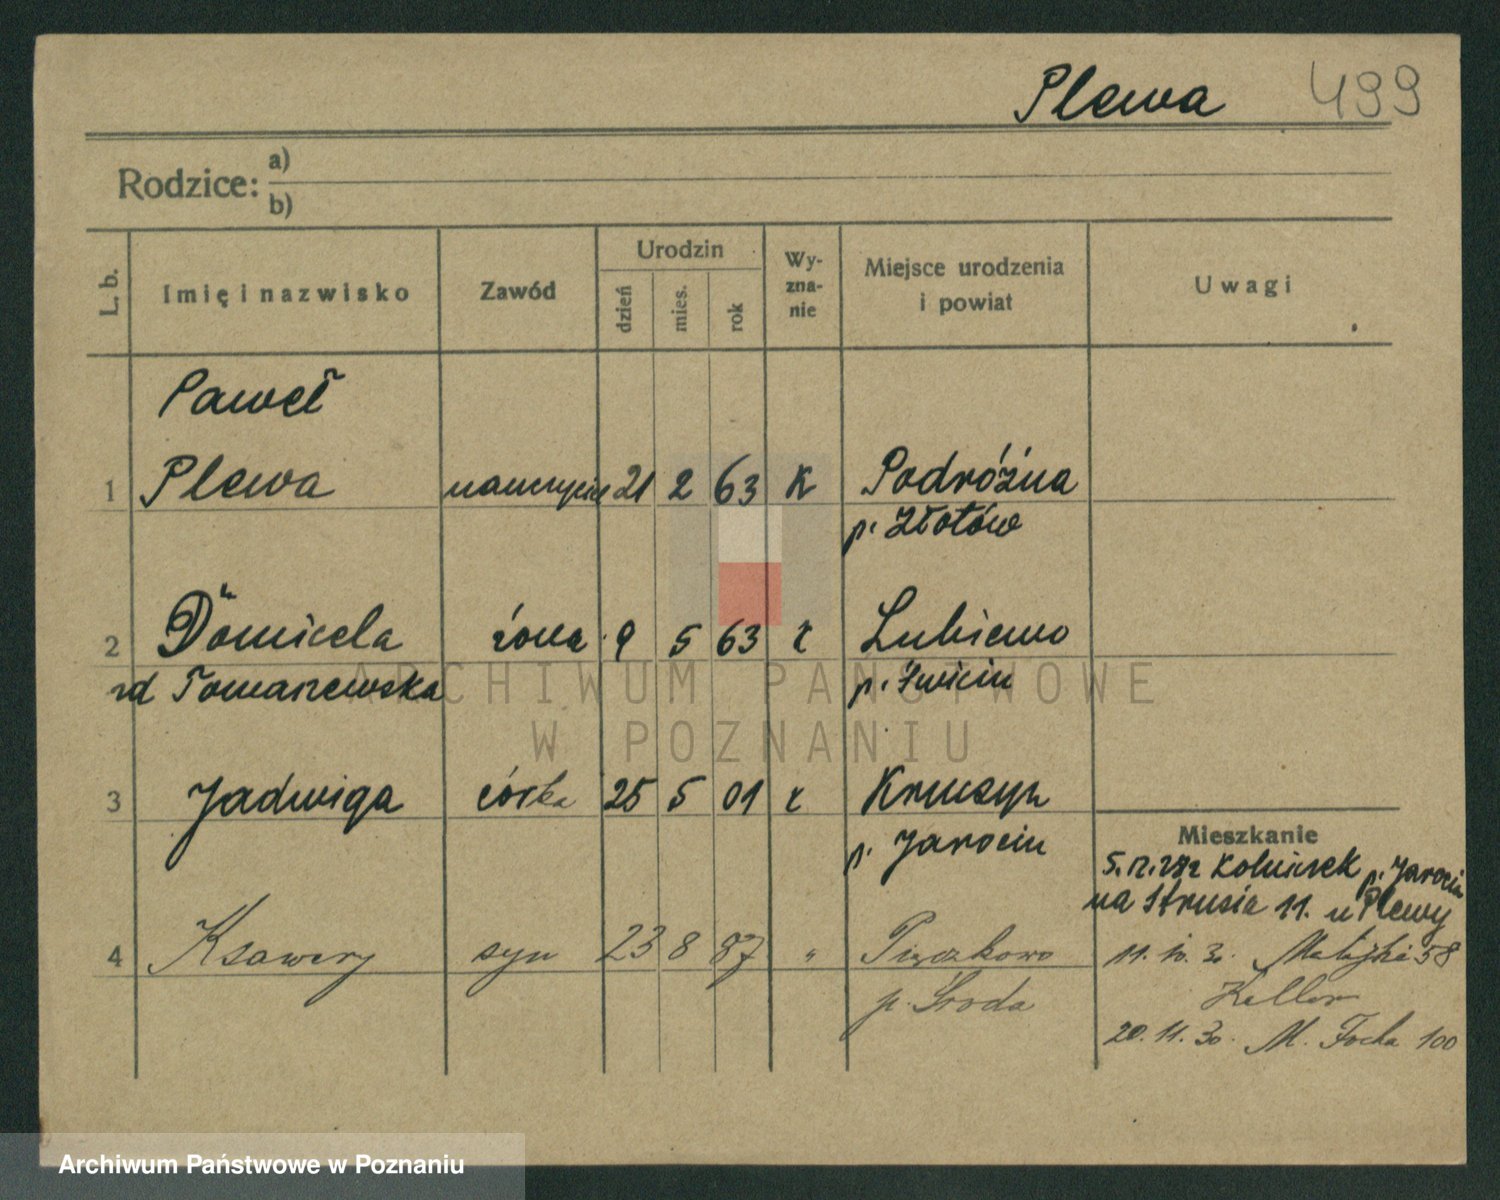 Plewa 499
Rodzice: a)
b)
L. b. Imię i nazwisko Zawód Urodzin dzień mies. rok Wy-zna-nie Miejsce urodzenia i powiat Uwagi
Paweł
1 Plewa nauczyciel 21 2 63 K Podróżna
p. Złotów
2 Domicela żona 9 5 63 k Lubiewo
rd Tomaszewska p. Świecin
3 Jadwiga córka 25 5 01 k Kruczyn
p. Jarocin
Mieszkanie
5.12. p. Jarocin
na Strusia 11. u Plewy
4 Ksawery syn 23 8 87 " Pięczkowo
11. 10. 30. Matejki 58
p. Środa
Keller
20. 11. 30. M. Focha 100
ARCHIWUM PAŃSTWOWE
W POZNANIU
Archiwum Państwowe w Poznaniu